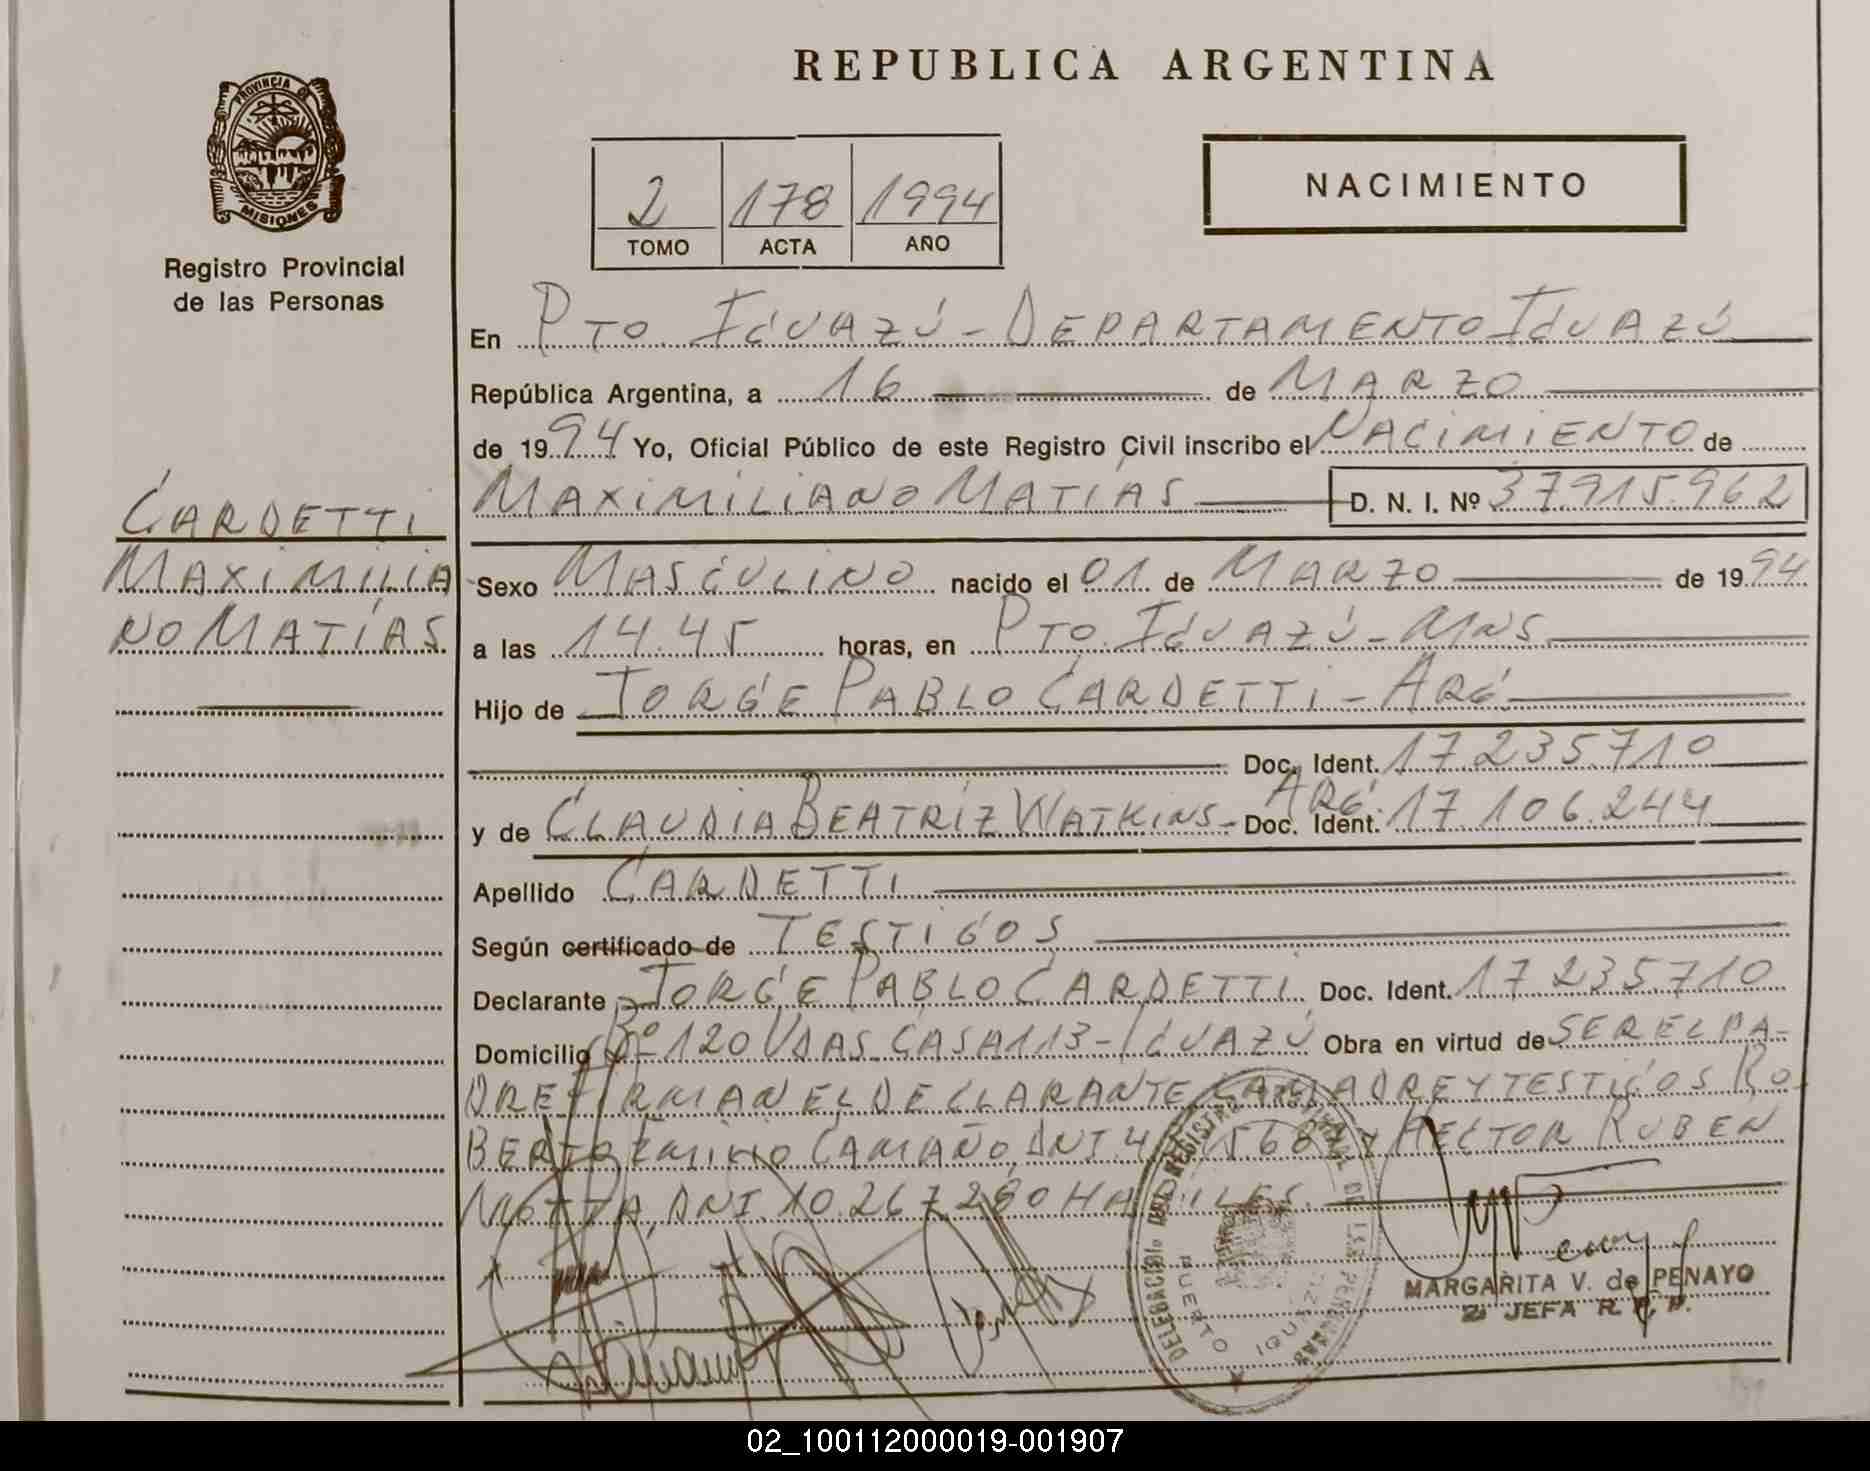 REPUBLICA ARGENTINA
PROVINCIA DE
MISIONES
Registro Provincial
de las Personas
2 178 1994
TOMO ACTA AÑO
NACIMIENTO
En PTO. IGUAZÚ - DEPARTAMENTO IGUAZÚ
República Argentina, a 16 de MARZO
de 1994 Yo, Oficial Público de este Registro Civil inscribo el NACIMIENTO de
MAXIMILIANO MATIAS D. N. I. Nº 37.915.962
CARDETTI
MAXIMILIA
NO MATÍAS.
Sexo MASCULINO nacido el 01 de MARZO de 1994
a las 14.45 horas, en PTO. IGUAZÚ - MNS
Hijo de JORGE PABLO CARDETTI - ARG
Doc. Ident. 17 235.710
y de CLAUDIA BEATRÍZ WATKINS - ARG. Doc. Ident. 17 106.244
Apellido CARDETTI
Según certificado de TESTIGOS
Declarante JORGE PABLO CARDETTI Doc. Ident. 17 235.710
Domicilio Bº 120 VDAS. CASA 113 - IGUAZÚ Obra en virtud de SER EL PA-
DRE FIRMAN EL DECLARANTE LA MADRE Y TESTIGOS RO-
BERTO EMILIO CAMAÑO, DNI. Y HECTOR RUBEN
MOTTA, DNI. 10.267.280 HABILES.
DELEGACION REGISTRO PROVINCIAL DE LAS PERSONAS
PUERTO IGUAZU
MARGARITA V. de PENAYO
2ª JEFA R. P. P.
02_100112000019-001907